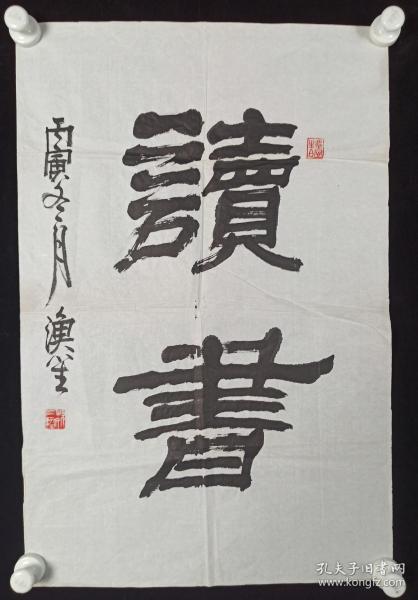 讀書
丙寅冬月 漁笙
孔夫子旧书网
www.kongfz.com